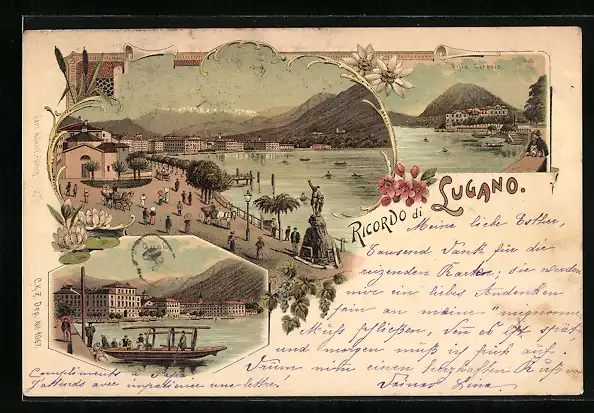 Villa Ceresio.
RICORDO di LUGANO.
Meine liebe Esther,
Tausend Dank für die
reizenden Karten; sie werden
mir ein liebes Andenken
sein an meine "mignonne
Muß schließen, denn es ist spät
und morgen muß ich früh auf.
Drum nimm einen herzhaften Kuß von
Deiner Lina.
Compliments à Papa
J'attends avec impatience une lettre!
C.K.Z. Dep. No. 4067.